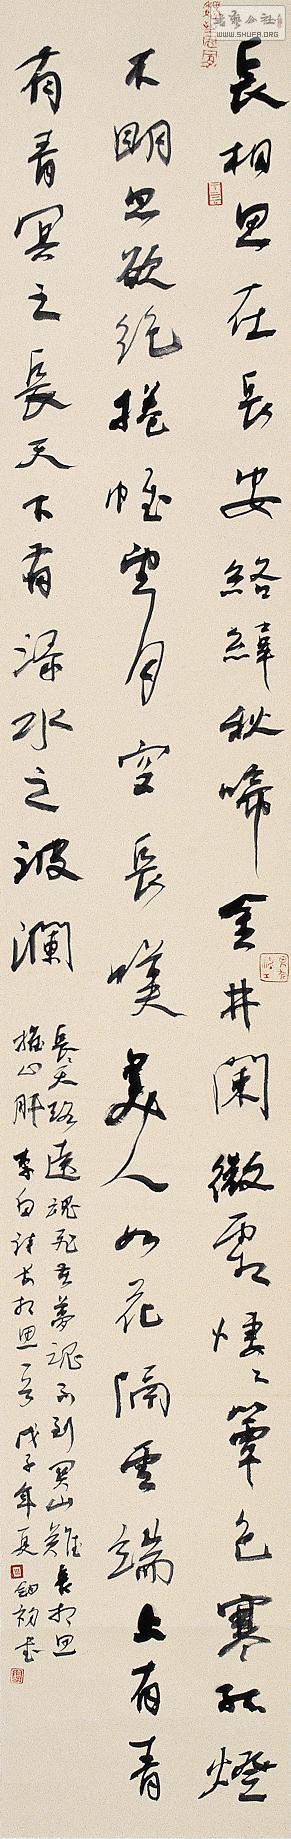 書藝公社
WWW.SHUFA.ORG
長相思在長安絡緯秋啼金井闌微霜凄〻簟色寒孤燈
不明思欲絕捲帷望月空長嘆美人如花隔雲端上有青
有青冥之長天下有渌水之波瀾
長天路遠魂飛苦夢魂不到關山難長相思
摧心肝李白詩長相思一首戊子年夏初書